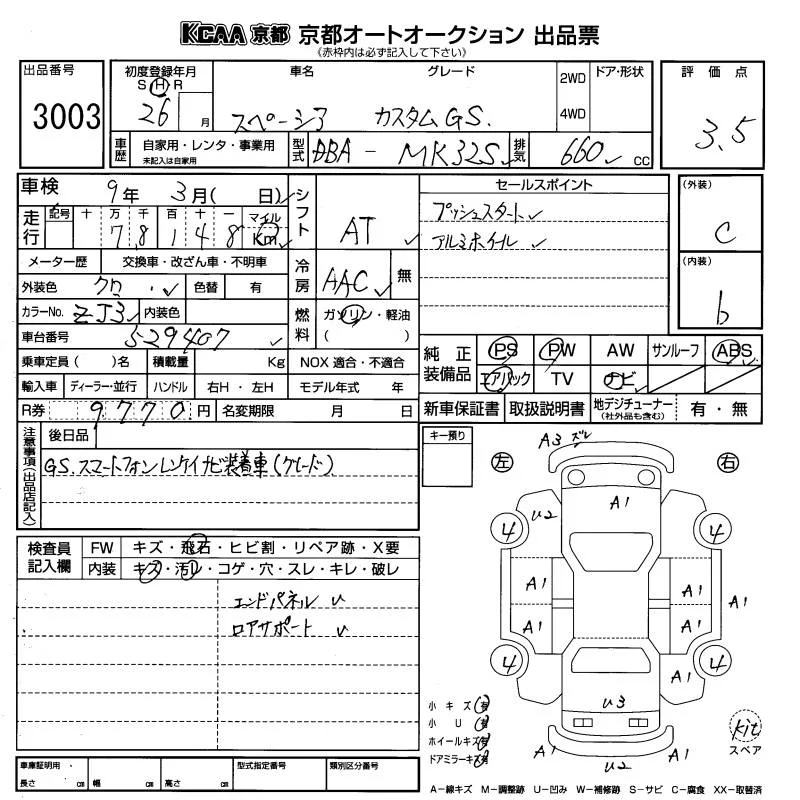 KCAA 京都 京都オートオークション 出品票
(赤枠内は必ず記入して下さい)
出品番号
3003
初度登録年月
S H R
26 月
車名 グレード
スペーシア カスタムGS.
2WD
4WD
ドア・形状
評価点
3.5
車歴
自家用・レンタ・事業用
未記入は自家用
型式
DBA - MK32S
排気
660 CC
車検 9年 3月( 日)
走行
記号 十 万 千 百 十 一 マイル
7 8 1 4 8 Km
メーター歴 交換車・改ざん車・不明車
外装色 クロ 色替 有
カラーNo. ZJ3 内装色
車台番号 529407
シフト
AT
冷房
AAC 無
燃料
ガソリン・軽油
( )
乗車定員( )名 積載量 Kg NOX適合・不適合
輸入車 ディーラー・並行 ハンドル 右H・左H モデル年式 年
R券 9770円 名変期限 月 日
セールスポイント
プッシュスタート
アルミホイール
(外装)
C
(内装)
b
純正装備品
PS PW AW サンルーフ ABS
エアバック TV ナビ
新車保証書 取扱説明書 地デジチューナー(社外品も含む) 有・無
注意事項(出品店記入)
後日品
GS.スマートフォンレンケイナビ装着車(グレード)
キー預り
検査員記入欄
FW キズ・飛石・ヒビ割・リペア跡・X要
内装 キズ・汚レ・コゲ・穴・スレ・キレ・破レ
エンドパネル U
ロアサポート U
左 右
A3 ズレ
U2
A1
4 4
A1 A1
A1
A1 A1
4 4
A1
U3
A1 U2 A1
小キズ 有
小U 有
ホイールキズ 有
ドアミラーキズ 有
kit
スペア
車庫証明用・
長さ cm 幅 cm 高さ cm
型式指定番号
類別区分番号
A-線キズ M-調整跡 U-凹み W-補修跡 S-サビ C-腐食 XX-取替済